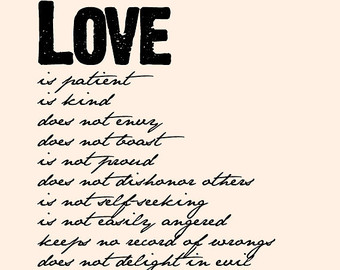 LOVE
is patient
is kind
does not envy
does not boast
is not proud
does not dishonor others
is not self-seeking
is not easily angered
keeps no record of wrongs
does not delight in evil